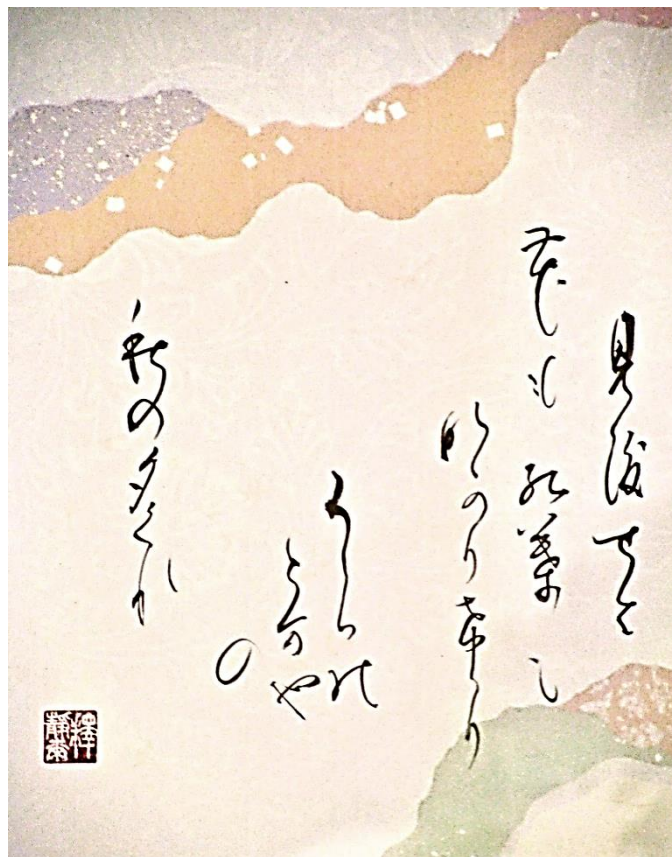 見渡せは
花も紅葉も
なかりけり
うらの
とまや
の
秋の夕くれ